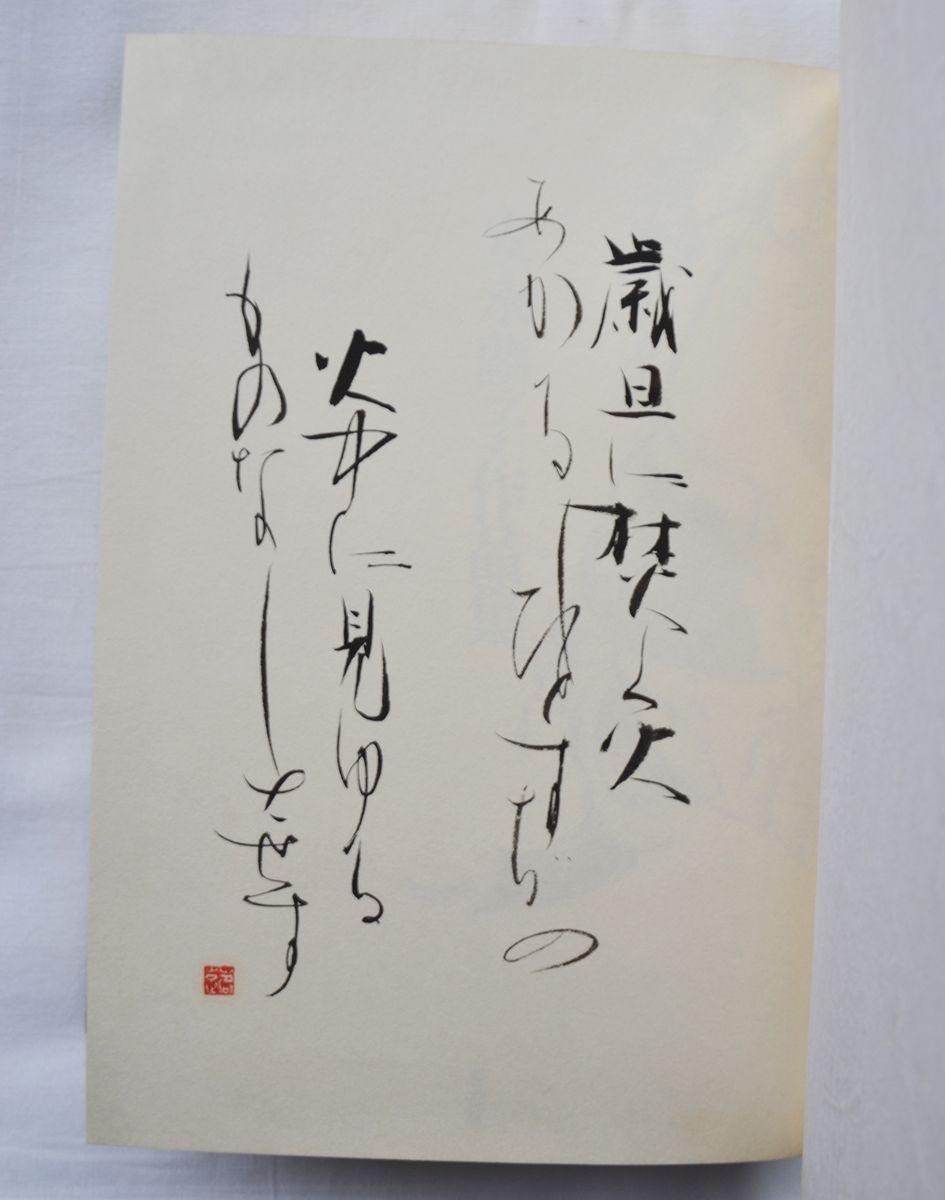 歳旦に焚く火
あかるしひとすぢの
火中に見ゆる
ものなしとせず